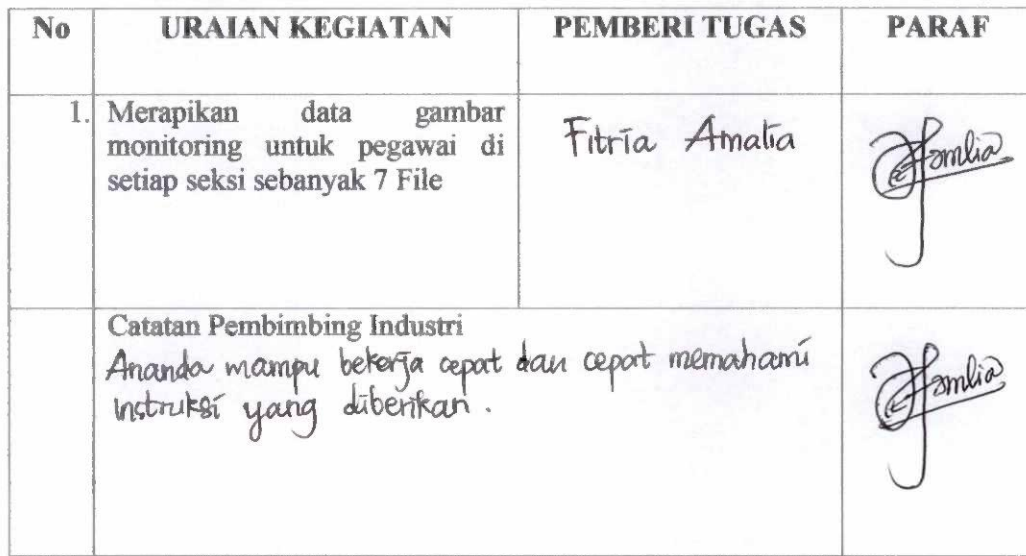 No URAIAN KEGIATAN PEMBERI TUGAS PARAF
1. Merapikan data gambar
monitoring untuk pegawai di
setiap seksi sebanyak 7 File
Fitria Amalia
Catatan Pembimbing Industri
Ananda mampu bekerja cepat dan cepat memahami
instruksi yang diberikan.